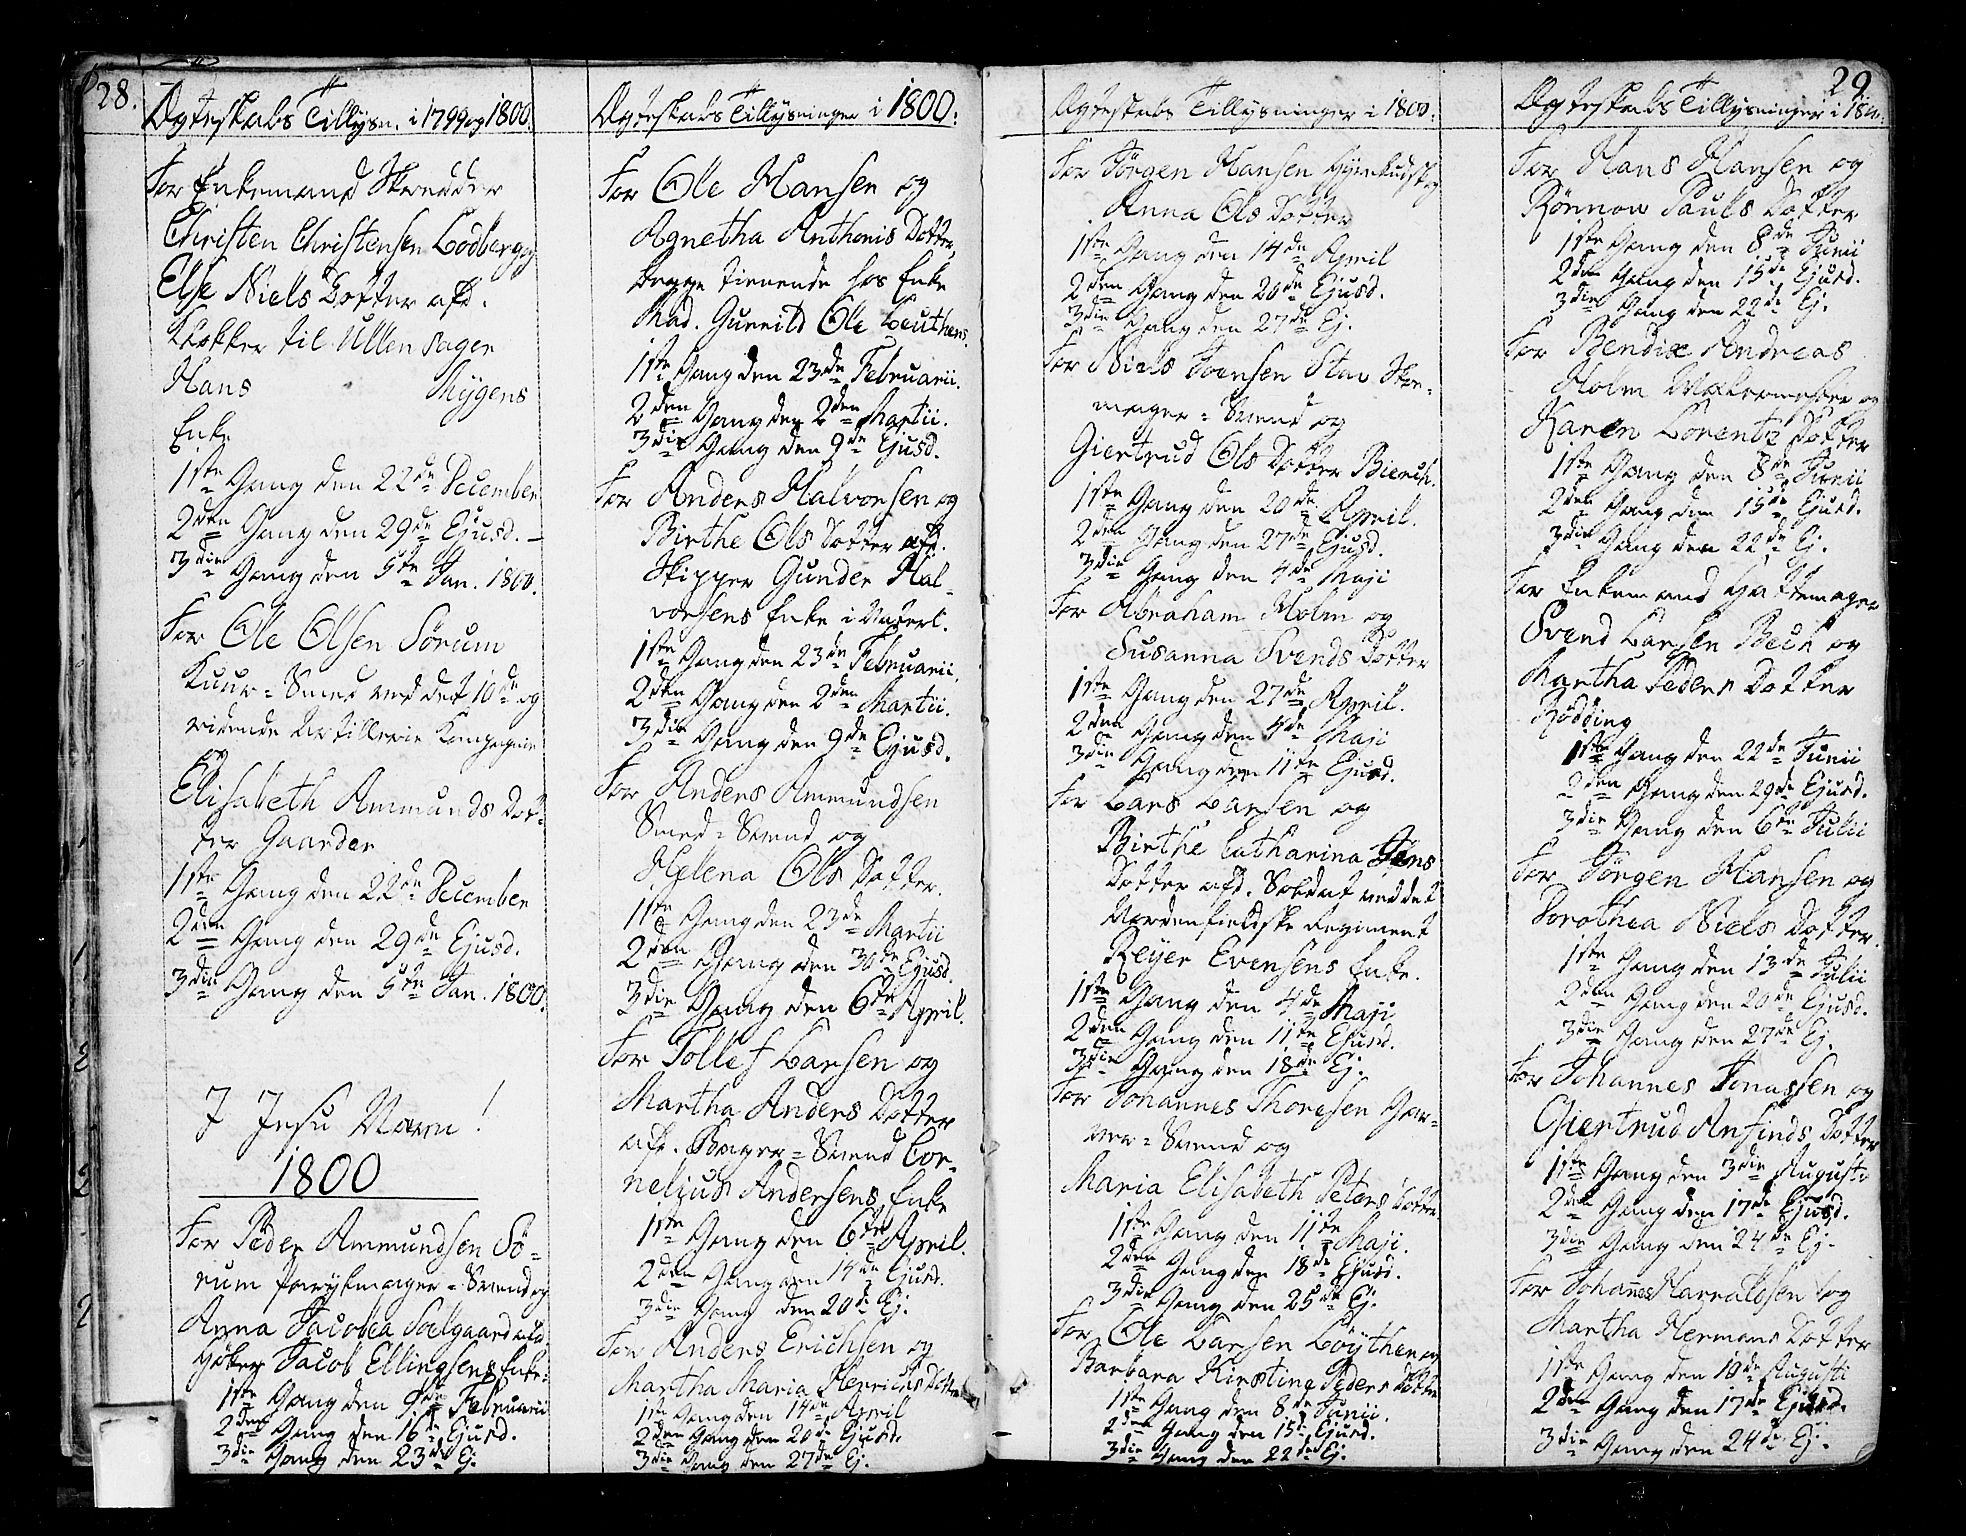 28.
Ægteskabs Tillysn. i 1799 og 1800.
For Enkemand Skrædder
Christen Christensen Lodberg og
Else Niels Dotter afd.
Klokker til Ullensager
Hans Hygens
Enke
1ste Gang den 22de December
2den Gang den 29de Ejusd.
3die Gang den 5te Jan. 1800.
For Ole Olsen Sörum
Kuur-Smed ved det 10de og
ridende Artillerie Kompagnie
og
Elisabeth Ammunds Dot-
ter Gaarder
1ste Gang den 22de December
2den Gang den 29de Ejusd.
3die Gang den 5te Jan. 1800.
I Jesu Navn!
1800
For Peder Ammundsen Sö-
rum Parykmager-Svend og
Anna Jacobea Solgaard afd.
Höker Jacob Ellingsens Enke.
1ste Gang den 9de Februarii
2den Gang den 16de Ejusd.
3die Gang den 23de Ej.
Ægteskabs Tillysninger i 1800.
For Ole Hansen og
Agnetha Anthonis Dotter,
begge tienende hos Enke
Mad. Gunnild Ole Leuthens.
1ste Gang den 23de Februarii.
2den Gang den 2den Martii.
3die Gang den 9de Ejusd.
For Anders Halvorsen og
Birthe Ols Dotter afd.
Skipper Gunder Hal-
vorsens Enke i Vaterl.
1ste Gang den 23de Februarii.
2den Gang den 2den Martii.
3die Gang den 9de Ejusd.
For Anders Ammundsen
Smed-Svend og
Helena Ols Dotter.
1ste Gang den 23de Martii
2den Gang den 30de Ejusd.
3die Gang den 6te April.
For Tollef Larsen og
Martha Anders Dotter
afd. Bager-Svend Cor-
nelius Andersens Enke
1ste Gang den 6te April.
2den Gang den 14de Ejusd.
3die Gang den 20de Ej.
For Anders Erichsen og
Martha Maria Henrichs Dotter
1ste Gang den 14de April
2den Gang den 20de Ejusd.
3die Gang den 27de Ej.
Ægteskabs Tillysninger i 1800.
For Jörgen Hansen og
Anna Ols Dotter
1ste Gang den 14de April
2den Gang den 20de Ejusd.
3die Gang den 27de Ej.
For Niels Svensen Stav Skoe-
mager-Svend og
Giertrud Ols Dotter Bierch.
1ste Gang den 20de April.
2den Gang den 27de Ejusd.
3die Gang den 4de Maji
For Abraham Holm og
Susanna Svends Dotter
1ste Gang den 27de April.
2den Gang den 4de Maji
3die Gang den 11te Ejusd.
For Lars Larsen og
Birthe Catharina Jens
Dotter afd. Soldat ved det
Nordenfieldske Regiment
Reyer Evensens Enke.
1ste Gang den 4de Maji
2den Gang den 11te Ejusd.
3die Gang den 18de Ej.
For Johannes Thoresen Gar-
ver-Svend og
Maria Elisabeth Peters Dotter.
1ste Gang den 11te Maji.
2den Gang den 18de Ejusd.
3die Gang den 25de Ej.
For Ole Larsen Löythen og
Barbara Kirstine Peders Dotter
1ste Gang den 8de Junii.
2den Gang den 15de Ejusd.
3die Gang den 22de Ej.
29
Ægteskabs Tillysninger i 1800.
For Hans Hansen og
Rönnow Pauls Dotter
1ste Gang den 8de Junii
2den Gang den 15de Ejusd.
3die Gang den 22de Ej.
For Bendix Andreas
Holm og
Karen Lorentz Dotter
1ste Gang den 8de Junii
2den Gang den 15de Ejusd.
3die Gang den 22de Ej.
For Enkemand Hattemager
Svend Larsen Bech og
Martha Peders Dotter
Rödding
1ste Gang den 22de Junii
2den Gang den 29de Ejusd.
3die Gang den 6te Julii
For Jörgen Hansen og
Dorothea Niels Dotter.
1ste Gang den 13de Julii
2den Gang den 20de Ejusd.
3die Gang den 27de Ej.
For Johannes Jonassen og
Giertrud Anfinds Dotter
1ste Gang den 3die Augusti
2den Gang den 17de Ejusd.
3die Gang den 24de Ej.
For Johannes Harraldsen og
Martha Hermans Dotter
1ste Gang den 10de Augusti
2den Gang den 17de Ejusd.
3die Gang den 24de Ej.